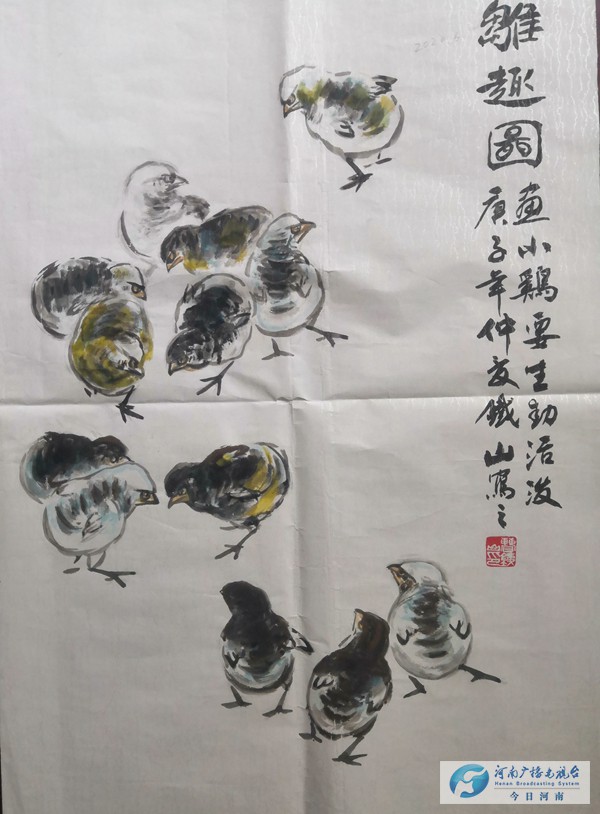 雛趣圖
畫小鷄要生動活泼
庚子年仲夏鐵山寫之
河南广播电视台
Henan Broadcasting System
今日河南